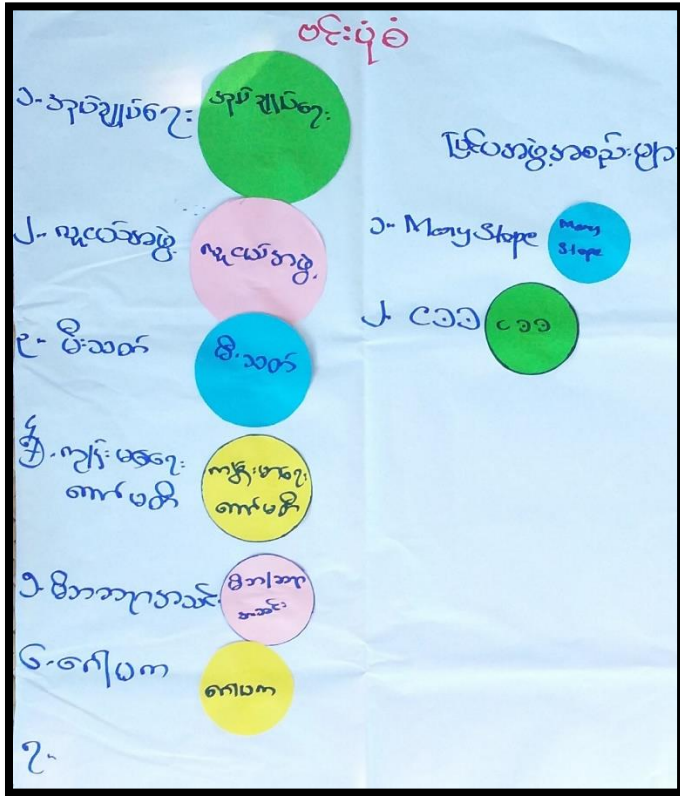 ဗင်းပုံစံ
၁-အုပ်ချုပ်ရေး
အုပ်ချုပ်ရေး
၂-လူငယ်အဖွဲ့
လူငယ်အဖွဲ့
၃-မီးသတ်
မီးသတ်
၄-ကျန်းမာရေး
ကော်မတီ
ကျန်းမာရေး
ကော်မတီ
၅-မိဘဆရာအသင်း
မိဘ/ဆရာ
အသင်း
၆-ဂေါပက
ဂေါပက
၇-
ပြင်ပအဖွဲ့အစည်းများ
၁-Mary Stope
Mary
Stope
၂-ငခခ
ငခခ